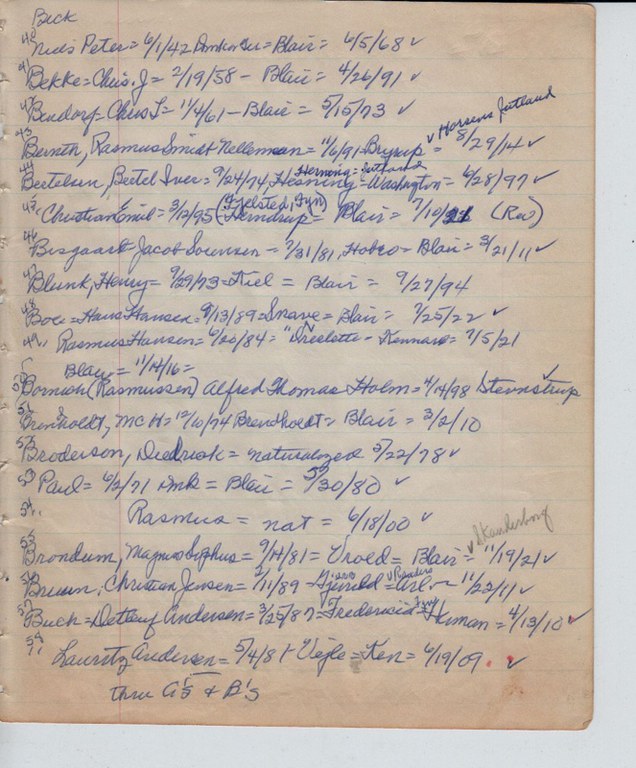 Beck
40 Niels Peter = 6/1/42 Dmk = Blair = 6/5/68 ✓
41 Bekke = Chris. J = 2/19/58 - Blair = 4/26/91 ✓
42 Bendorf = Chris L = 11/4/61 - Blair = 5/15/73 ✓
✓ Horsens Jutland
43 Bernth, Rasmus Smidt Nelleman = 11/6/91 Bryrup = 8/29/14 ✓
Herning = Jutland
44 Bertelsen, Bertel Iver = 9/24/74, Hesning = Washington = 6/28/97 ✓
(Fjelsted, Fyn)
45, Christian Emil = 3/12/95 (Herndrup = Blair = 7/10/21 (Rw)
46 Bisgaard Jacob Sorensen - 7/31/81, Hobro = Blair = 3/21/11 ✓
47 Blunk, Henry = 9/29/73 = Kiel = Blair = 9/27/94
48 Boe = Hans Hansen = 9/13/89 = Snave = Blair = 7/25/22 ✓
49, " Rasmus Hansen = 6/20/84 = " - Kennard = 7/5/21
Blair = 11/14/16 =
50 Bornich (Rasmussen) Alfred Thomas Holm = 4/14/98 Stevnstrup ✓
51 Brenholdt, Mc H = 12/10/74 Brendholdt = Blair = 3/2/10
52 Broderson, Diedrick = naturalized 3/22/78 ✓
53 Paul = 6/2/71 Dmk = Blair = 5/30/80 ✓
54, Rasmus = nat = 6/18/00 ✓
✓ Skanderborg
55 Brondum, Magnus Sophus = 9/14/81 = Vroed = Blair = 11/19/21 ✓
✓ Randers
56 Bruun, Christian Jensen = 2/11/89 = Gjerrild = Arl. - 11/22/11 ✓
57 Buck = Detlef Andersen = 3/25/87 = Fredericia = Herman = 4/13/10 ✓
58, Lauritz Andersen = 5/4/81 - Vejle = Ken = 6/19/09. ✓
thru A's & B's